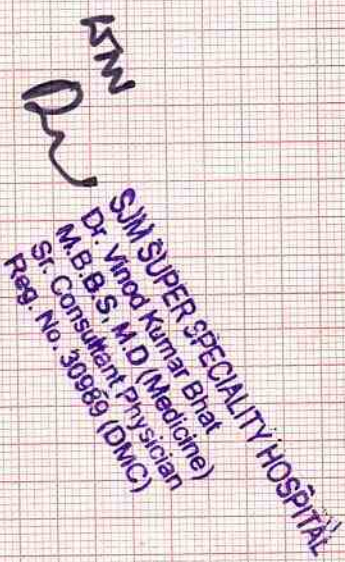 SJM SUPER SPECIALITY HOSPITAL
Dr. Vinod Kumar Bhat
M.B.B.S, M.D (Medicine)
Sr. Consultant Physician
Reg. No. 30989 (DMC)